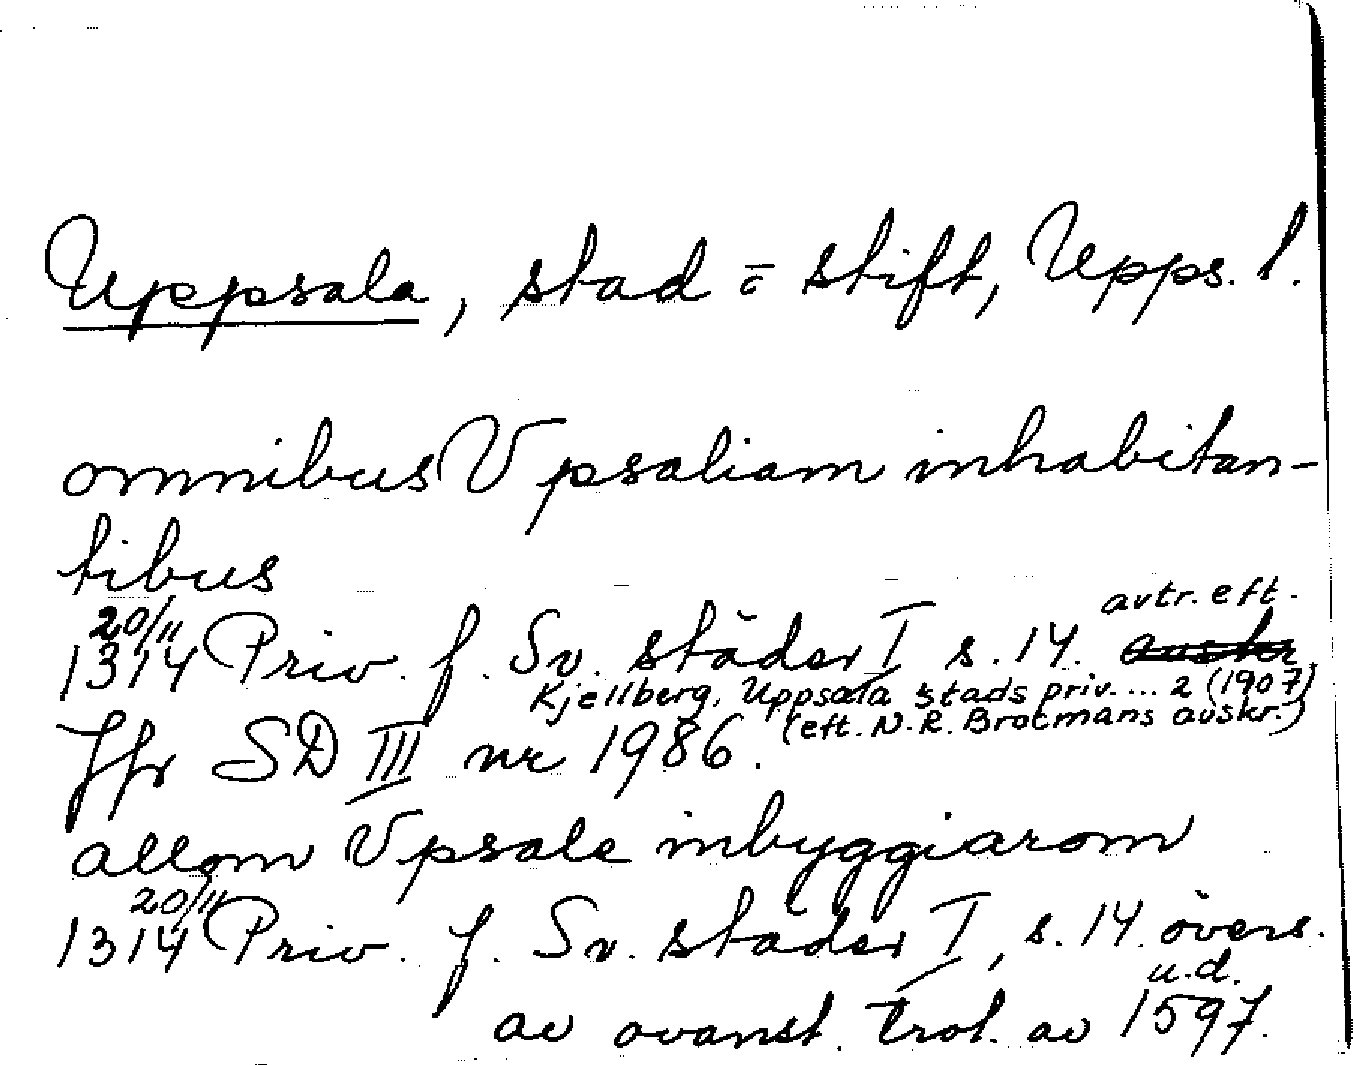 Uppsala, stad o stift, Upps. l.
omnibus Vpsaliam inhabitan-
tibus
20/11 avtr. eft.
1314 Priv. f. Sv. städer I s. 14.
Kjellberg, Uppsala stads priv.... 2 (1907)
(eft. N.R. Brocmans avskr.)
Jfr SD III nr 1986.
allom Vpsale inbyggiarom
20/11
1314 Priv. f. Sv. städer I, s. 14. övers.
u.d.
av ovanst. trol. av 1597.